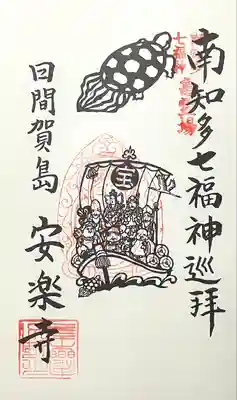 南知多七福神巡拝
七福神
霊場
宝
日間賀島
安楽寺